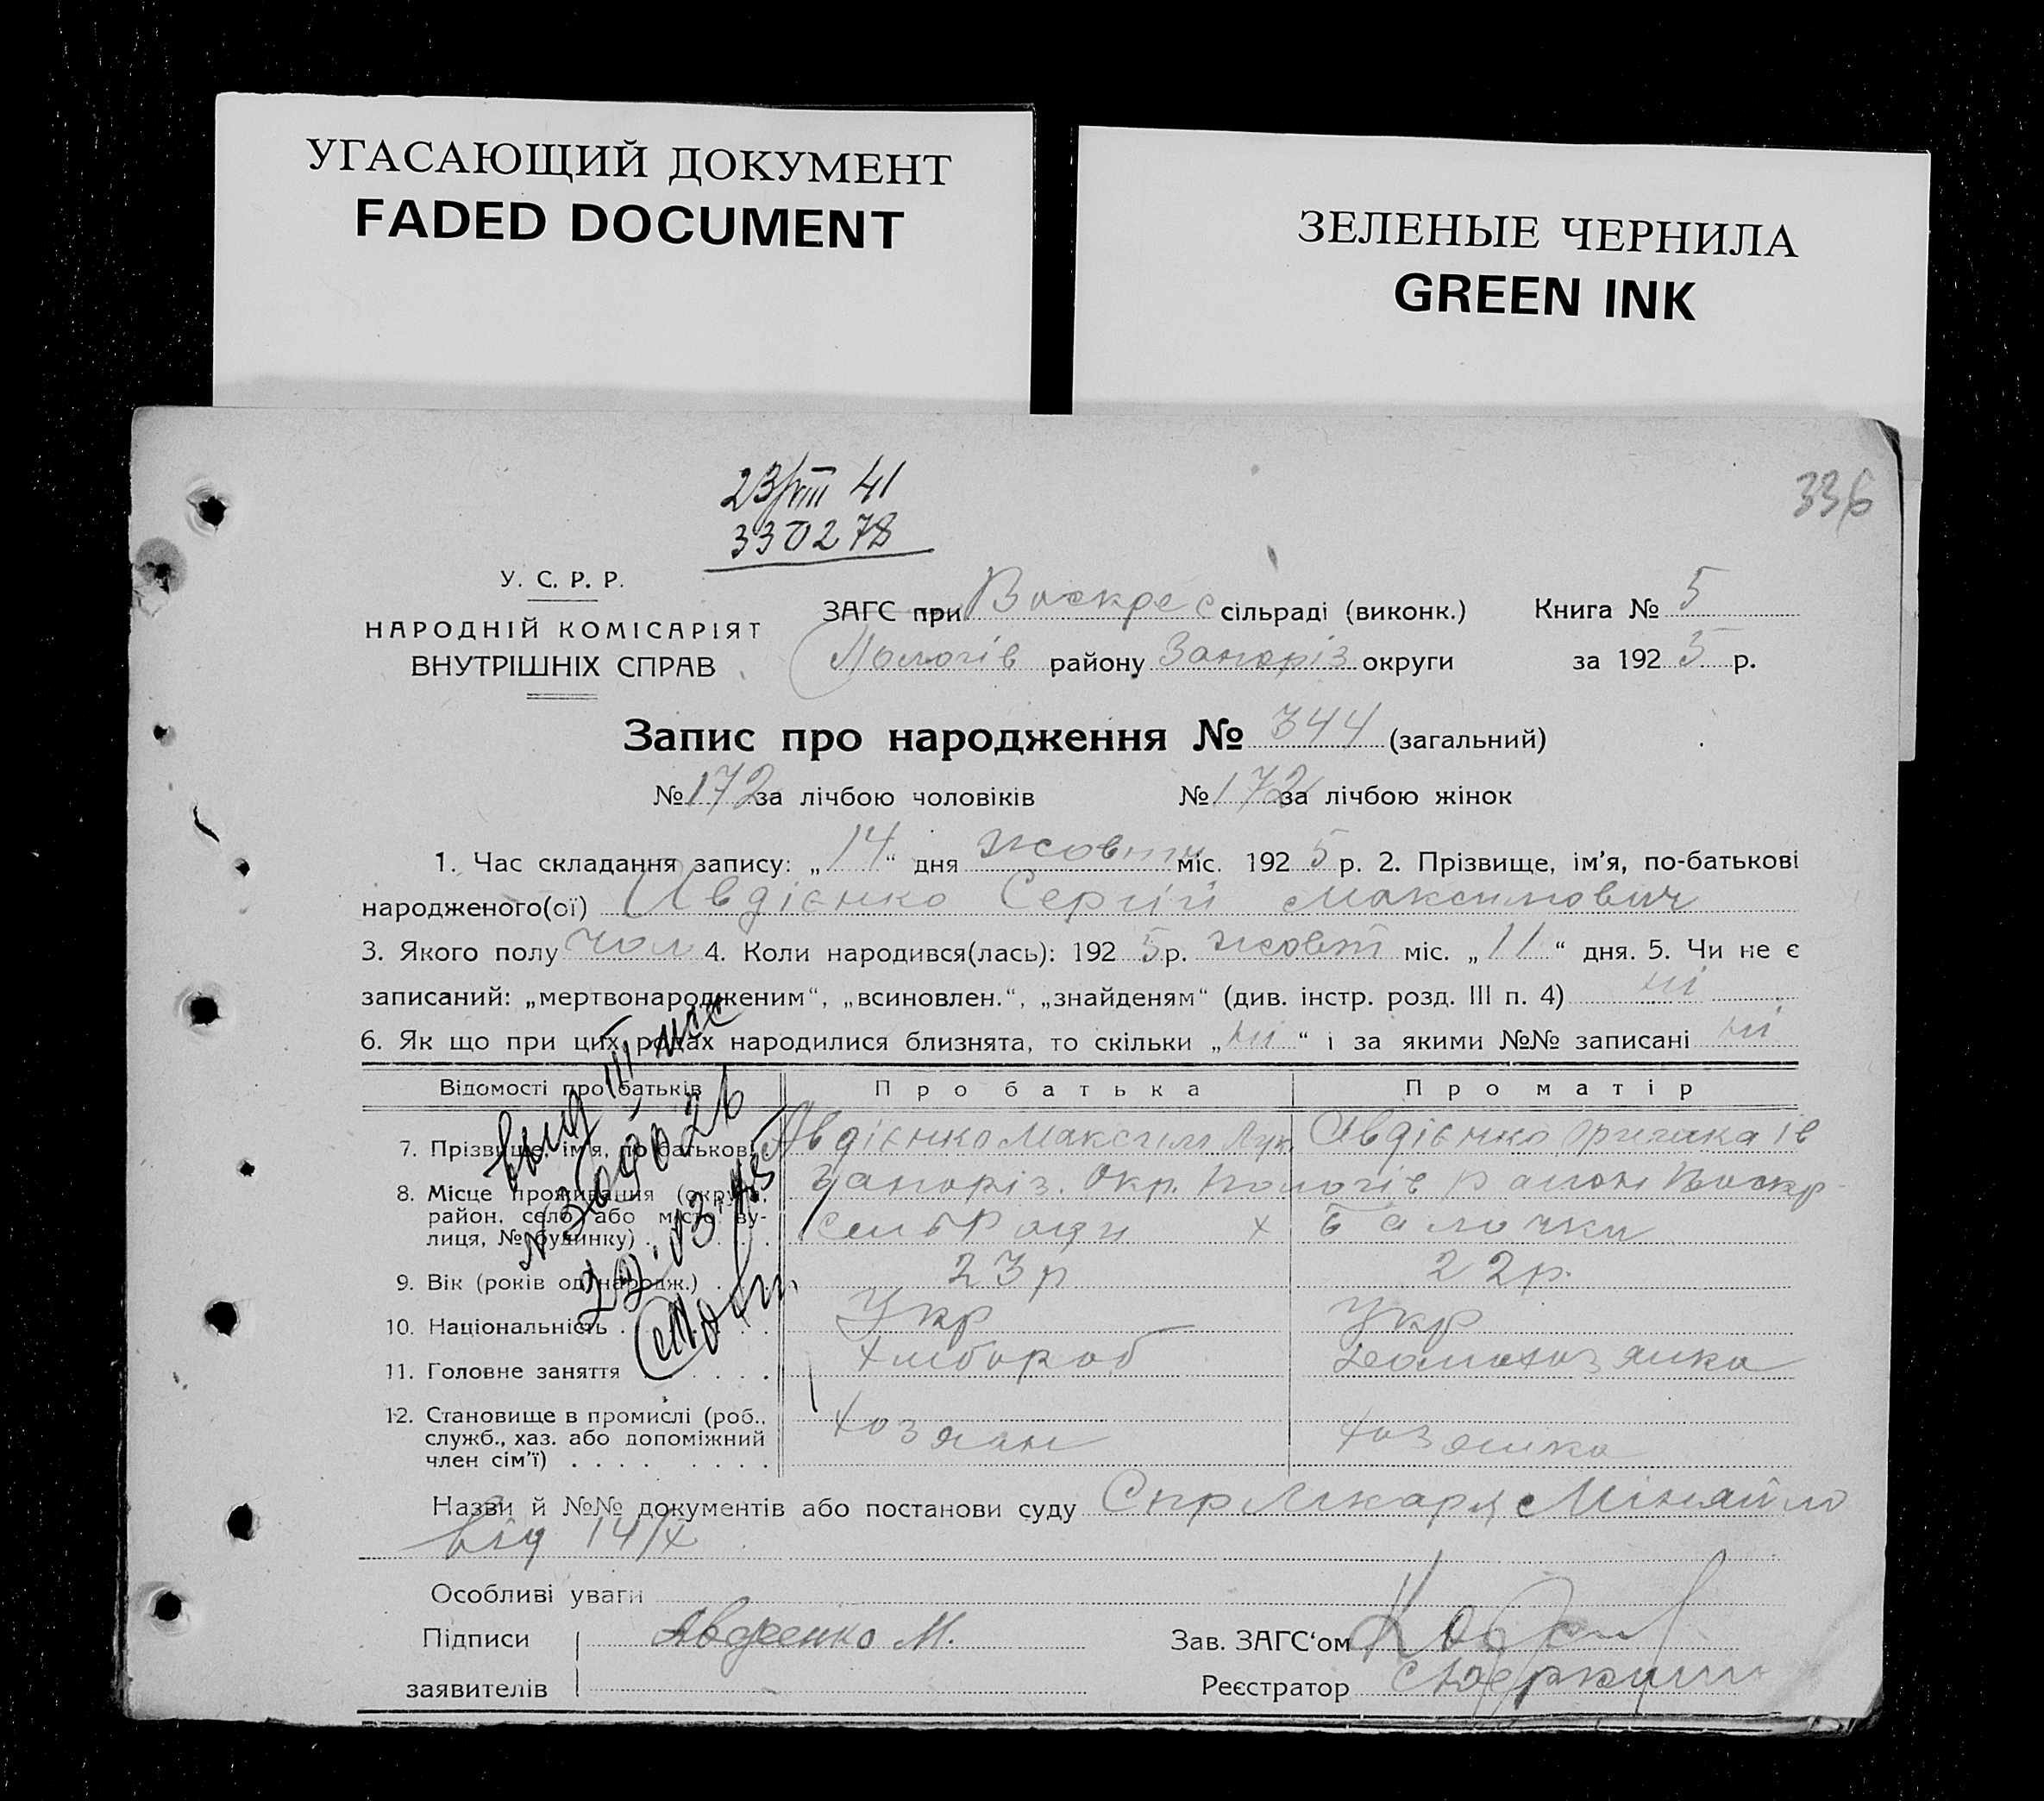 УГАСАЮЩИЙ ДОКУМЕНТ
FADED DOCUMENT
ЗЕЛЕНЫЕ ЧЕРНИЛА
GREEN INK
336
23/VIII 41
330278
У. С. Р. Р.
НАРОДНІЙ КОМІСАРІЯТ
ВНУТРІШНІХ СПРАВ
ЗАГС при Воскрес сільраді (виконк.) Книга № 5
Пологів району Запоріз округи за 1925 р.
Запис про народження № 344 (загальний)
№ 172 за лічбою чоловіків № 172 за лічбою жінок
1. Час складання запису: „14“ дня жовтн міс. 1925 р. 2. Прізвище, ім’я, по-батькові
народженого(ої) Авдієнко Сергій Максимович
3. Якого полу чол 4. Коли народився(лась): 1925 р. жовт міс. „11“ дня. 5. Чи не є
записаний: „мертвонародженим“, „всиновлен.“, „знайденям“ (див. інстр. розд. III п. 4) ні
6. Як що при цих родах народилися близнята, то скільки „ні“ і за якими №№ записані ні
Відомості про батьків Про батька Про матір
7. Прізвище, ім’я, по батькові Авдієнко Максим Лук. Авдієнко Ів
8. Місце проживання (округа, район, село або місто, вулиця, № будинку) Запоріз. Окр. Пологів район Воскр
сельради х Балочки
9. Вік (років од народж.) 23 р 22 р.
10. Національність Укр Укр
11. Головне заняття Хлібороб Домохазяйка
12. Становище в промислі (роб., служб., хаз. або допоміжний член сім’ї) Хозяин Хозяйка
Назви й №№ документів або постанови суду Спр Лікаря Міняйло
від 14/X
Особливі уваги
Підписи Авдеенко М. Зав. ЗАГС‘ом
заявителів Реєстратор